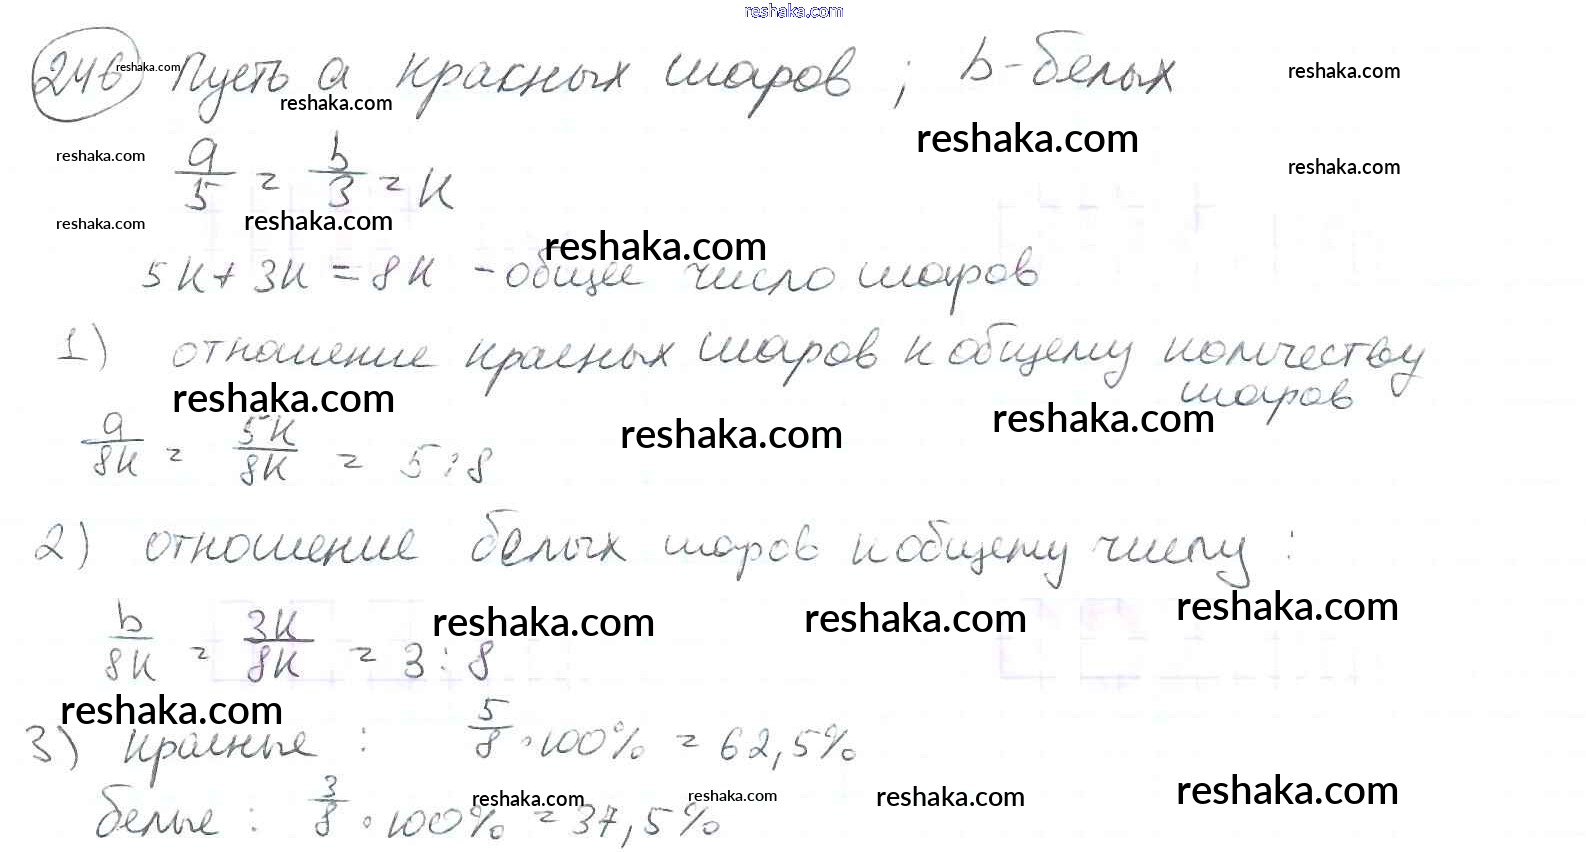 reshaka.com
246 reshaka.com Пусть a красных шаров ; b - белых reshaka.com
reshaka.com
reshaka.com
reshaka.com a/5 = b/3 = к reshaka.com
reshaka.com reshaka.com
reshaka.com
5к + 3к = 8к - общее число шаров
1) отношение красных шаров к общему количеству
шаров
reshaka.com reshaka.com reshaka.com
a/8к = 5к/8к = 5:8
2) отношение белых шаров к общему числу :
reshaka.com reshaka.com reshaka.com
b/8к = 3к/8к = 3:8
reshaka.com
3) красные : 5/8 · 100% = 62,5%
reshaka.com reshaka.com reshaka.com reshaka.com
белые : 3/8 · 100% = 37,5%